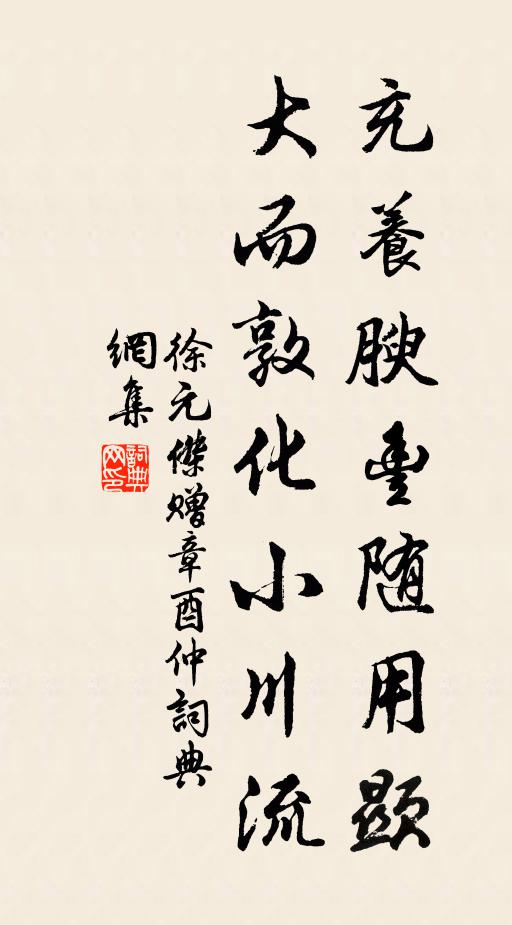 充養腴豊随用顯
大而敦化小川流
徐元傑贈章酉仲詞典
網集
詞典网印